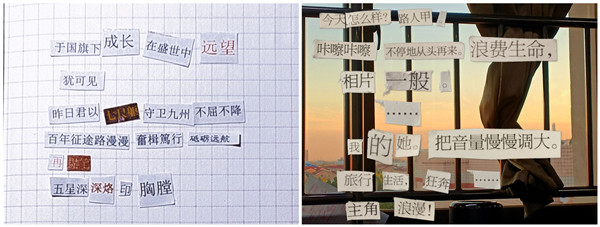 于国旗下 成长 在盛世中 远望
犹可见
昨日君以 守卫九州 不屈不降
百年征途路漫漫 奮楫篤行 砥砺远航
再
五星深 深烙 印 胸膛
今天 怎么样？ 路人甲
咔嚓咔嚓 不停地从头再来。 浪费生命，
相片 一般 。
……
我 的 她。 把音量慢慢调大。
旅行 生活， 狂奔 ……
主角 浪漫！